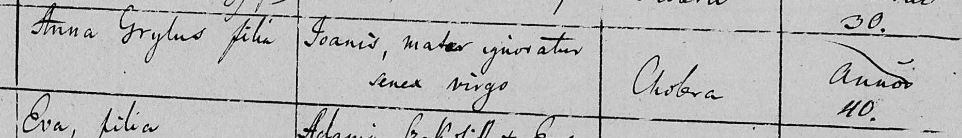 30.
Anna Grylus filia Joanis, mater ignoratur
senex virgo Cholera annos
40.
Eva, filia Adami